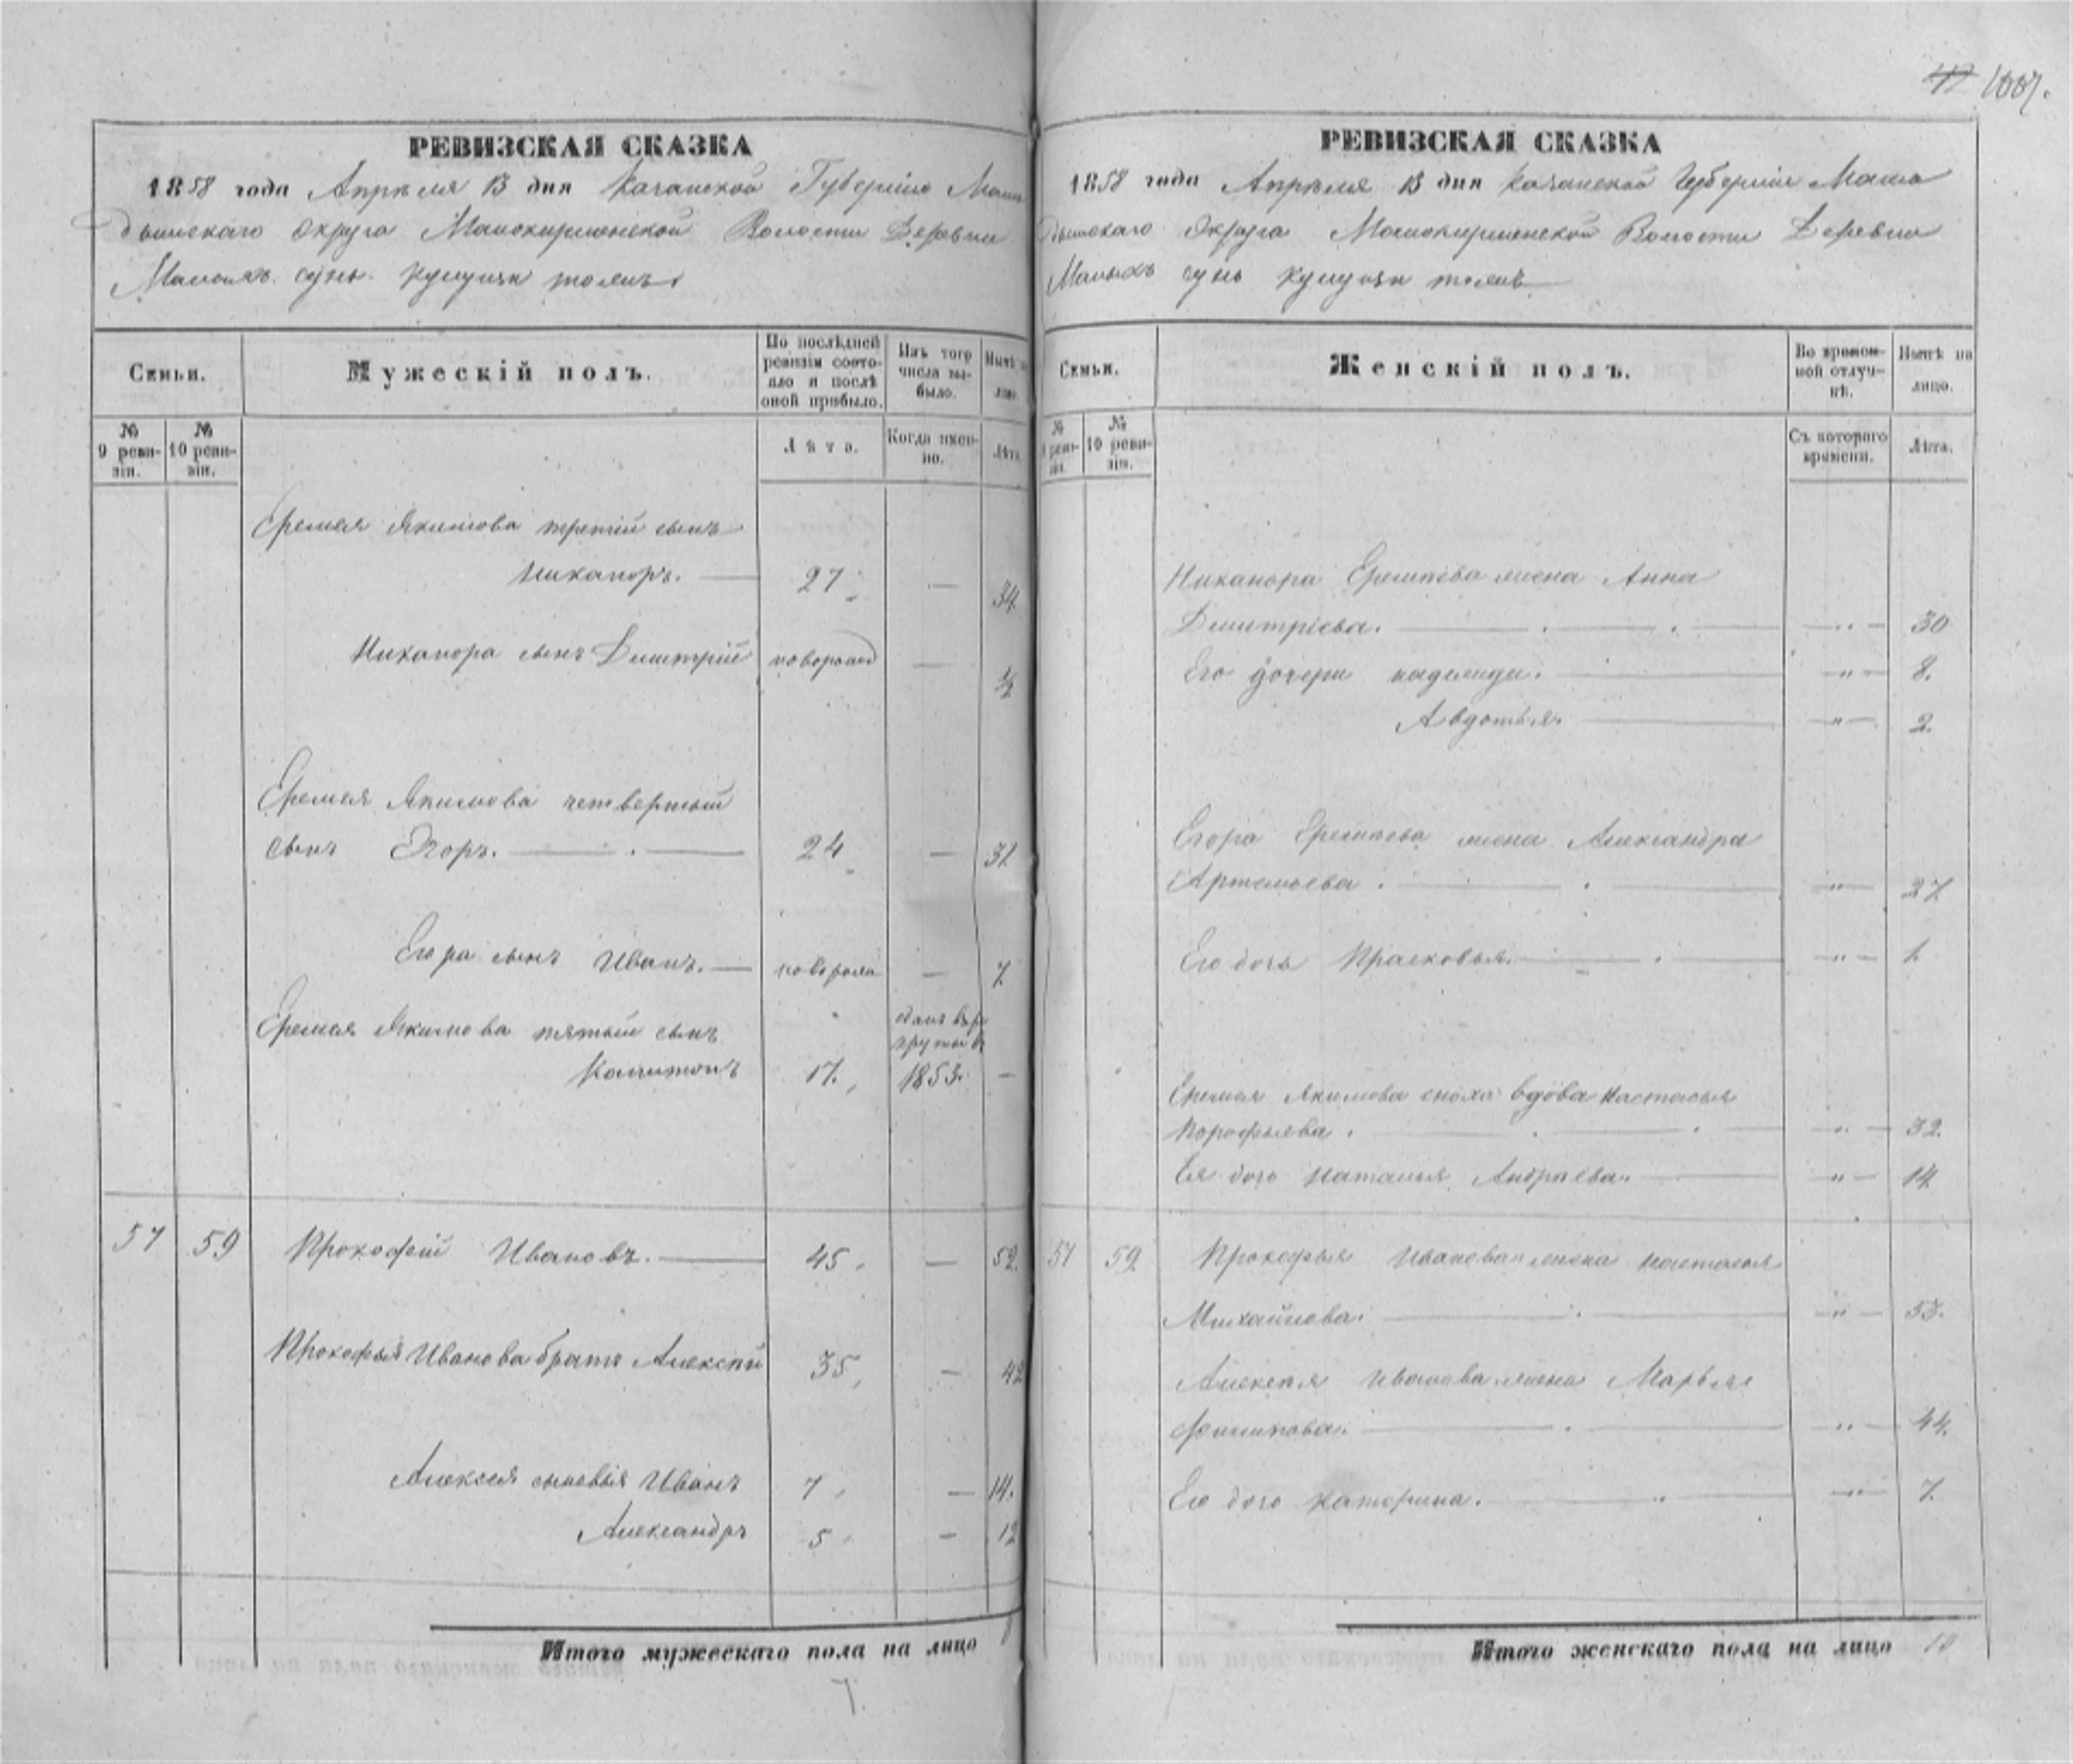 1007.
РЕВИЗСКАЯ СКАЗКА
1858 года Апрѣля 13 дня Казанской Губерніи Мама
дышскаго Округа Мамокирменской Волости Деревни
Малыхъ сунь
Семьи.
Мужескій полъ.
По послѣдней ревизіи состояло и послѣ оной прибыло.
Изъ того числа выбыло.
Нынѣ на лицо.
№ 9 ревизіи.
№ 10 ревизіи.
Лѣта.
Когда именно.
Лѣта.
Еремея Якимова третій сынъ
Никаноръ. 27 — 34
Никанора сынъ Дмитрій новорожд — ½
Еремея Якимова четвертый
сынъ Егоръ. 24 — 31
Егора сынъ Иванъ. новорож — 7
Еремея Якимова пятый сынъ
Капитонъ 17. 1853. —
57 59 Прокофій Ивановъ. 45 — 52.
Прокофья Иванова братъ Алексѣй 35 — 42
Алексея сыновья Иванъ 7 — 14.
Александръ 5 — 12
Итого мужескаго пола на лицо 8
7.
РЕВИЗСКАЯ СКАЗКА
1858 года Апрѣля 13 дня Казанской Губерніи Мама
дышскаго Округа Мамокирменской Волости Деревни
Малыхъ сунь
Семьи.
Женскій полъ.
Во временной отлучкѣ.
Нынѣ на лицо.
№ 9 ревизіи.
№ 10 ревизіи.
Съ котораго времени.
Лѣта.
Никанора Еремѣева жена Анна
Дмитріева. — „ — 30
Его дочери — „ — 8.
Авдотья. — „ — 2.
Егора Еремѣева жена Александра
Артемьева. — „ — 27
Его дочь Прасковья. — „ — 1.
Еремея Якимова сноха вдова Настасья
— „ — 32.
Ея дочь Наталья Андрѣева. — „ — 14
57 59 Прокофья Иванова жена Настасья
Михайлова. — „ — 53.
Алексѣя Иванова жена Марья
Филипова. — „ — 44.
Его дочь Катерина. — „ — 7.
Итого женскаго пола на лицо 10